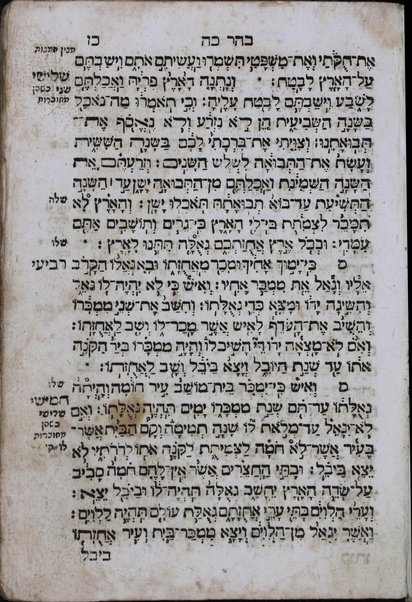 בהר כה
כז
את־חֻקֹּתַי וְאֶת־מִשְׁפָּטַי תִּשְׁמְרוּ וַעֲשִׂיתֶם אֹתָם וִישַׁבְתֶּם
עַל־הָאָרֶץ לָבֶטַח: וְנָתְנָה הָאָרֶץ פִּרְיָהּ וַאֲכַלְתֶּם
לָשֹׂבַע וִישַׁבְתֶּם לָבֶטַח עָלֶיהָ: וְכִי תֹאמְרוּ מַה־נֹּאכַל
בַּשָּׁנָה הַשְּׁבִיעִת הֵן לֹא נִזְרָע וְלֹא נֶאֱסֹף אֶת־
תְּבוּאָתֵנוּ: וְצִוִּיתִי אֶת־בִּרְכָתִי לָכֶם בַּשָּׁנָה הַשִּׁשִּׁית
וְעָשָׂת אֶת־הַתְּבוּאָה לִשְׁלֹשׁ הַשָּׁנִים: וּזְרַעְתֶּם אֵת
הַשָּׁנָה הַשְּׁמִינִת וַאֲכַלְתֶּם מִן־הַתְּבוּאָה יָשָׁן עַד הַשָּׁנָה
הַתְּשִׁיעִת עַד־בּוֹא תְּבוּאָתָהּ תֹּאכְלוּ יָשָׁן: וְהָאָרֶץ לֹא
תִמָּכֵר לִצְמִתֻת כִּי־לִי הָאָרֶץ כִּי־גֵרִים וְתוֹשָׁבִים אַתֶּם
עִמָּדִי: וּבְכֹל אֶרֶץ אֲחֻזַּתְכֶם גְּאֻלָּה תִּתְּנוּ לָאָרֶץ:
ס כִּי־יָמוּךְ אָחִיךָ וּמָכַר מֵאֲחֻזָּתוֹ וּבָא גֹאֲלוֹ הַקָּרֹב
אֵלָיו וְגָאַל אֵת מִמְכַּר אָחִיו: וְאִישׁ כִּי לֹא יִהְיֶה־לּוֹ גֹּאֵל
וְהִשִּׂיגָה יָדוֹ וּמָצָא כְּדֵי גְאֻלָּתוֹ: וְחִשַּׁב אֶת־שְׁנֵי מִמְכָּרוֹ
וְהֵשִׁיב אֶת־הָעֹדֵף לָאִישׁ אֲשֶׁר מָכַר־לוֹ וְשָׁב לַאֲחֻזָּתוֹ:
וְאִם לֹא־מָצְאָה יָדוֹ דֵּי הָשִׁיב לוֹ וְהָיָה מִמְכָּרוֹ בְּיַד הַקֹּנֶה
אֹתוֹ עַד שְׁנַת הַיּוֹבֵל וְיָצָא בַּיֹּבֵל וְשָׁב לַאֲחֻזָּתוֹ:
ס וְאִישׁ כִּי־יִמְכֹּר בֵּית־מוֹשַׁב עִיר חוֹמָה וְהָיְתָה
גְּאֻלָּתוֹ עַד־תֹּם שְׁנַת מִמְכָּרוֹ יָמִים תִּהְיֶה גְאֻלָּתוֹ: וְאִם
לֹא־יִגָּאֵל עַד־מְלֹאת לוֹ שָׁנָה תְמִימָה וְקָם הַבַּיִת אֲשֶׁר־
בָּעִיר אֲשֶׁר־לֹא חֹמָה לַצְּמִיתֻת לַקֹּנֶה אֹתוֹ לְדֹרֹתָיו לֹא
יֵצֵא בַּיֹּבֵל: וּבָתֵּי הַחֲצֵרִים אֲשֶׁר אֵין־לָהֶם חֹמָה סָבִיב
עַל־שְׂדֵה הָאָרֶץ יֵחָשֵׁב גְּאֻלָּה תִּהְיֶה־לּוֹ וּבַיֹּבֵל יֵצֵא:
וְעָרֵי הַלְוִיִּם בָּתֵּי עָרֵי אֲחֻזָּתָם גְּאֻלַּת עוֹלָם תִּהְיֶה לַלְוִיִּם:
וַאֲשֶׁר יִגְאַל מִן־הַלְוִיִּם וְיָצָא מִמְכַּר־בַּיִת וְעִיר אֲחֻזָּתוֹ
ביבל
שלישי
שני כשהן
מחוברות
רביעי
חמישי
שלישי
כשהן
מחוברות